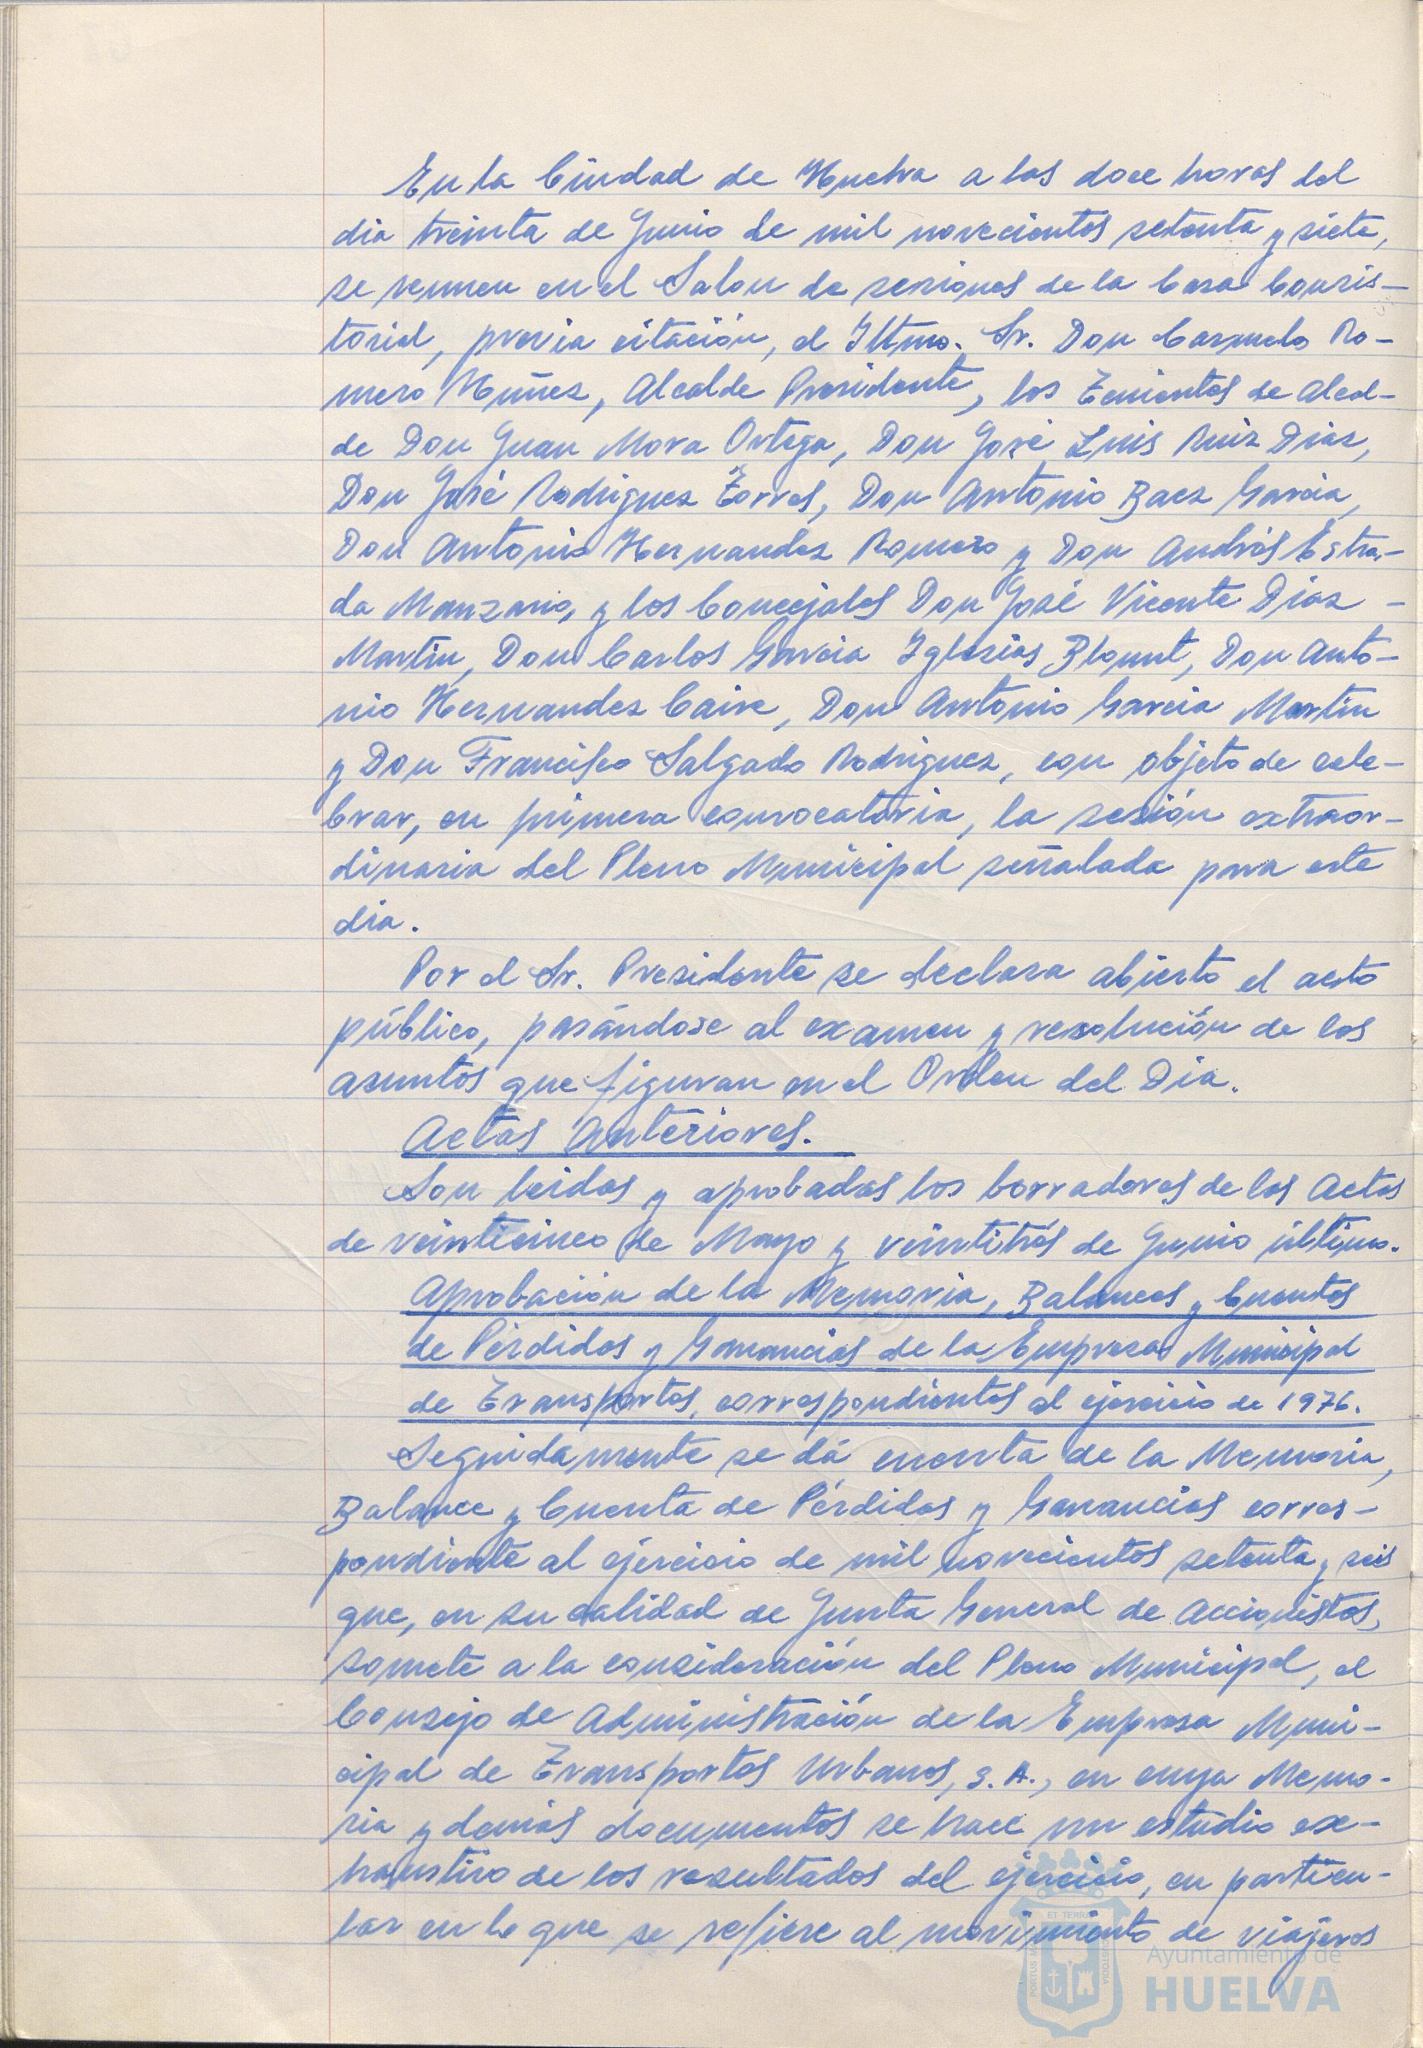 En la Ciudad de Huelva a las doce horas del
dia treinta de Junio de mil novecientos setenta y siete,
se reunen en el Salon de sesiones de la Casa Consis-
torial, previa citación, el Iltmo. Sr. Don Carmelo Ro-
mero Núñez, Alcalde Presidente, los Tenientes de Alcal-
de Don Juan Mora Ortega, Don José Luis Ruiz Diaz,
Don José Rodriguez Torres, Don Antonio Baez Garcia,
Don Antonio Hernandez Romero y Don Andrés Estra-
da Manzano, y los Concejales Don José Vicente Diaz -
Martin, Don Carlos Garcia Iglesias Blount, Don Anto-
nio Hernandez Caire, Don Antonio Garcia Martin
y Don Francisco Salgado Rodriguez, con objeto de cele-
brar, en primera convocatoria, la sesión extraor-
dinaria del Pleno Municipal señalada para este
dia.
Por el Sr. Presidente se declara abierto el acto
público, pasándose al examen y resolución de los
asuntos que figuran en el Orden del Dia.
Actas anteriores.
Son leidas y aprobadas los borradores de las Actas
de veinticinco de Mayo y veintitrés de Junio último.
Aprobación de la Memoria, Balances y Cuentas
de Pérdidas y Ganancias de la Empresa Municipal
de Transportes, correspondientes al ejercicio de 1976.
Seguidamente se dá cuenta de la Memoria,
Balance y Cuenta de Pérdidas y Ganancias corres-
pondiente al ejercicio de mil novecientos setenta y seis
que, en su calidad de Junta General de Accionistas,
somete a la consideración del Pleno Municipal, el
Consejo de Administración de la Empresa Muni-
cipal de Transportes Urbanos, S.A., en cuya Memo-
ria y demás documentos se hace un estudio ex-
haustivo de los resultados del ejercicio, en particu-
lar en lo que se refiere al movimiento de viajeros
Ayuntamiento de
HUELVA